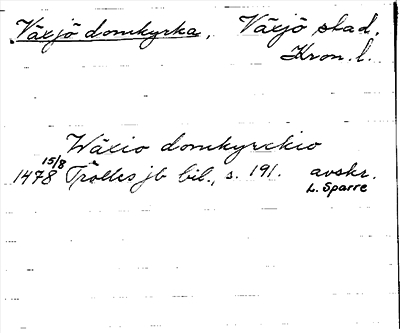 Växjö domkyrka, Växjö stad.
Kron. l.
Wäxio domkyrckio
15/8
1478 Trolles jb bil., s. 191. avskr.
L. Sparre